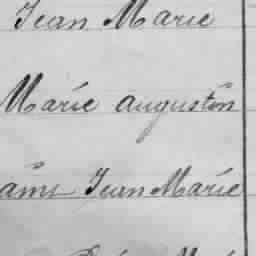 Jean Marie
Marie Augustin
Jean Marie